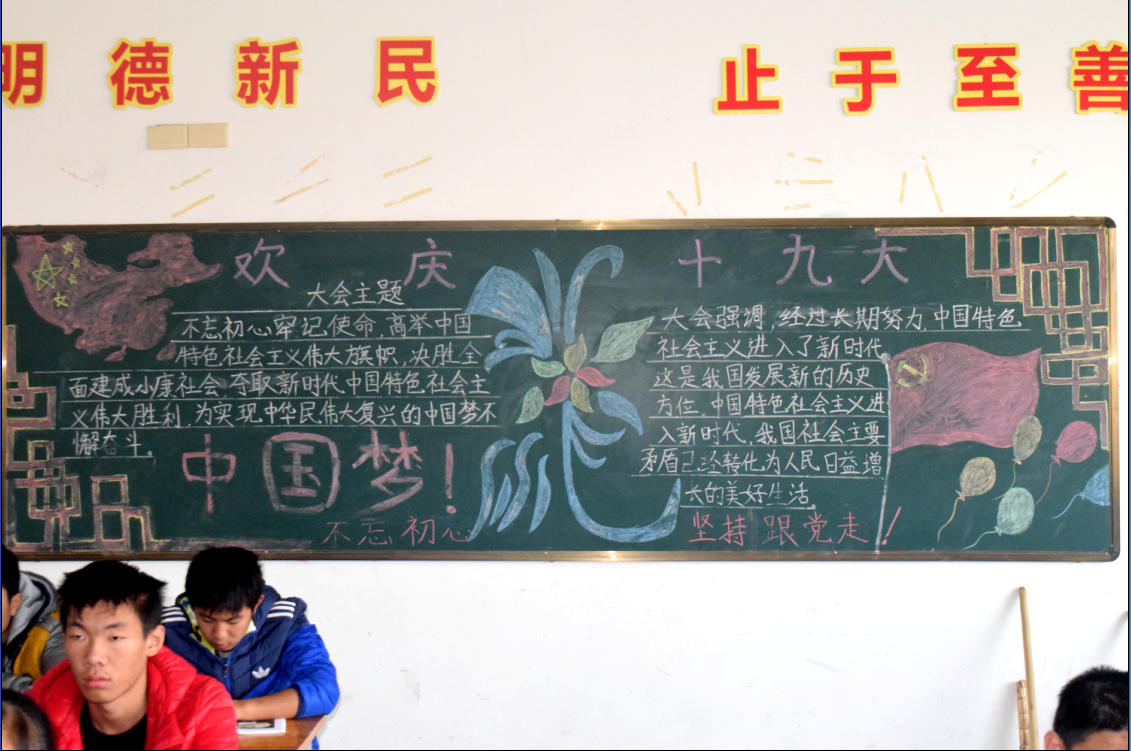 明德新民 止于至善
欢庆十九大
大会主题
不忘初心牢记使命,高举中国
特色社会主义伟大旗帜,决胜全
面建成小康社会,夺取新时代中国特色社会主
义伟大胜利,为实现中华民伟大复兴的中国梦不
懈奋斗。
中国梦!
不忘初心
大会强调,经过长期努力,中国特色
社会主义进入了新时代,
这是我国发展新的历史
方位,中国特色社会主义进
入新时代,我国社会主要
矛盾已经转化为人民日益增
长的美好生活
坚持跟党走!